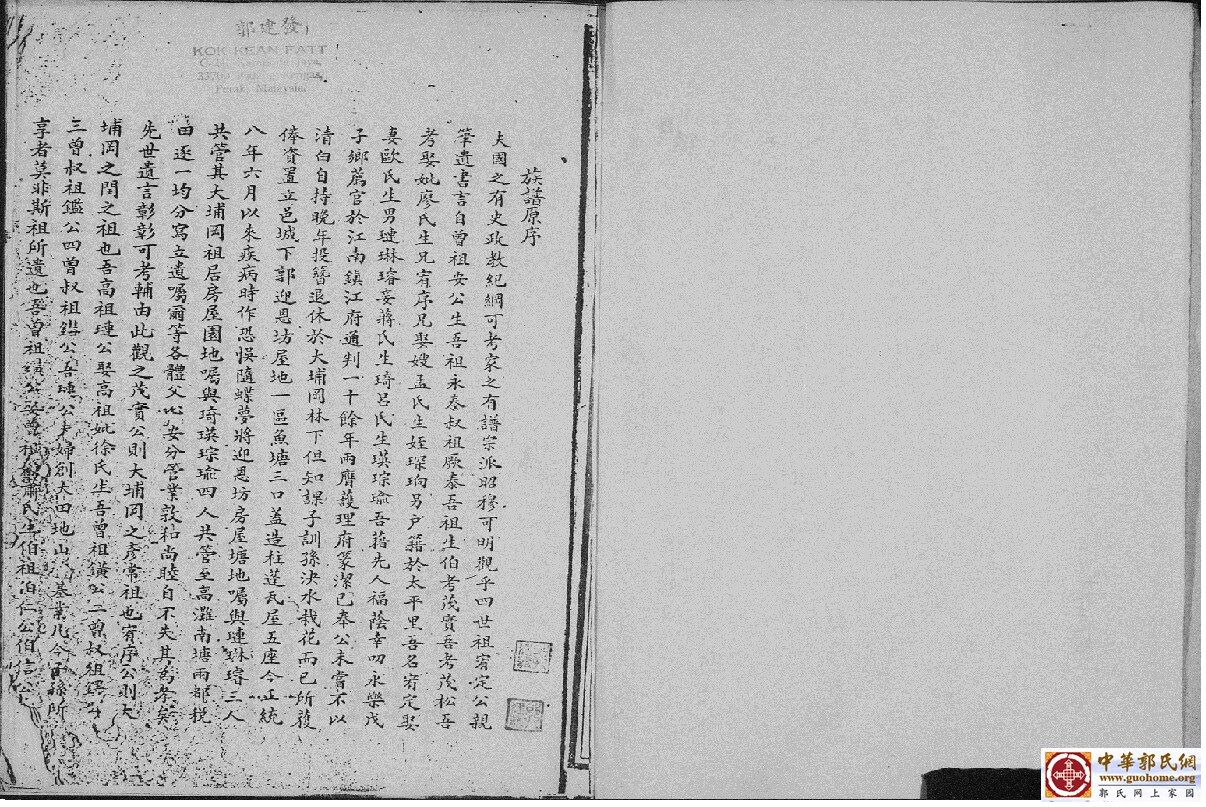 郭建發
KOK KEAN FATT
Perak, Malaysia.
族譜原序
夫國之有史政教紀綱可考家之有譜宗派昭穆可明觀乎四世祖宥定公親
筆遺書言自曾祖安公生吾祖永泰叔祖厥泰吾祖生伯考茂實吾考茂松吾
考娶妣廖氏生兄宥序兄娶嫂孟氏生姪琛珦另户籍於太平里吾名宥定娶
妻歐氏生男璉琳璿妾蔣氏生琦呂氏生瑛琮瑜吾藉先人福蔭幸叨永樂戊
子鄉薦官於江南鎮江府通判一十餘年兩膺護理府篆潔己奉公未嘗不以
清白自持晚年投簪退休於大埔岡林下但知課子訓孫決水栽花而已所積
俸資置立邑城下郭迎恩坊屋地一區魚塘三口蓋造柱蓬瓦屋五座今正統
八年六月以來疾病時作恐悮隨蝶夢將迎恩坊房屋塘地囑與璉琳璿三人
共管其大埔岡祖居房屋園地囑與琦瑛琮瑜四人共管至高灘南塘兩都稅
田逐一均分寫立遺囑爾等各體父心安分管業敦和尚睦自不失其為孝矣
先世遺言彰彰可考輔由此觀之茂實公則大埔岡之彥常祖也宥序公則大
埔岡之問之祖也吾高祖璉公娶高祖妣徐氏生吾曾祖鐄公二曾叔祖鐸公
三曾叔祖鑑公四曾叔祖公吾璉公夫婦創大田地山塘基業凡今子孫所
享者莫非斯祖所遺也吾曾祖鐄公娶曾祖妣蕭氏生伯祖伯仁公伯信公
中華郭氏網
www.guohome.org
郭氏网上家园